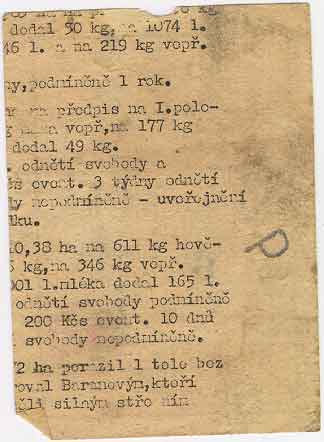 dodal 50 kg, na 1074 l.
46 l. a na 219 kg vopř.
ny,podmíněně 1 rok.
na předpis na I.polo-
vopř,na 177 kg
dodal 49 kg.
. odnětí svobody a
event. 3 týdny odnětí
dy nepodmíněně - uveřejnění
lku.
0,38 ha na 611 kg hově-
kg,na 346 kg vepř.
001 l.mléka dodal 165 l.
odnětí svobody podmíněně
200 Kčs event. 10 dnů
svobody nepodmíněně.
72 ha porazil 1 tele bez
roval Baranovým,kteří
ěli silným stře ním
P